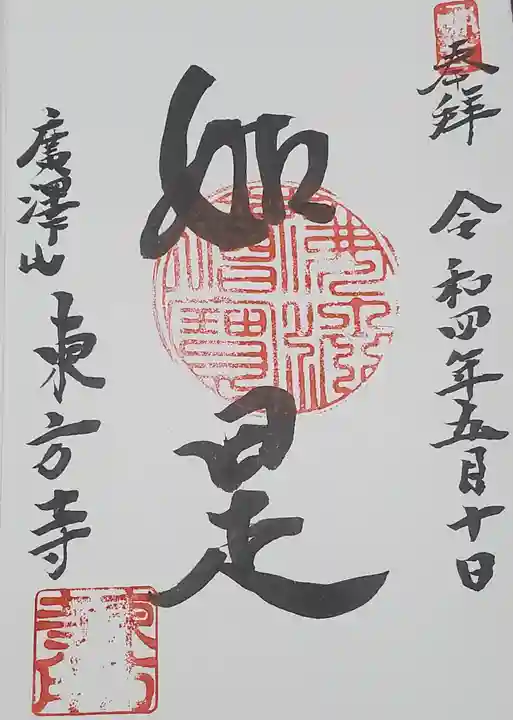 奉拝
令和四年五月十日
如是
廣澤山
東方寺